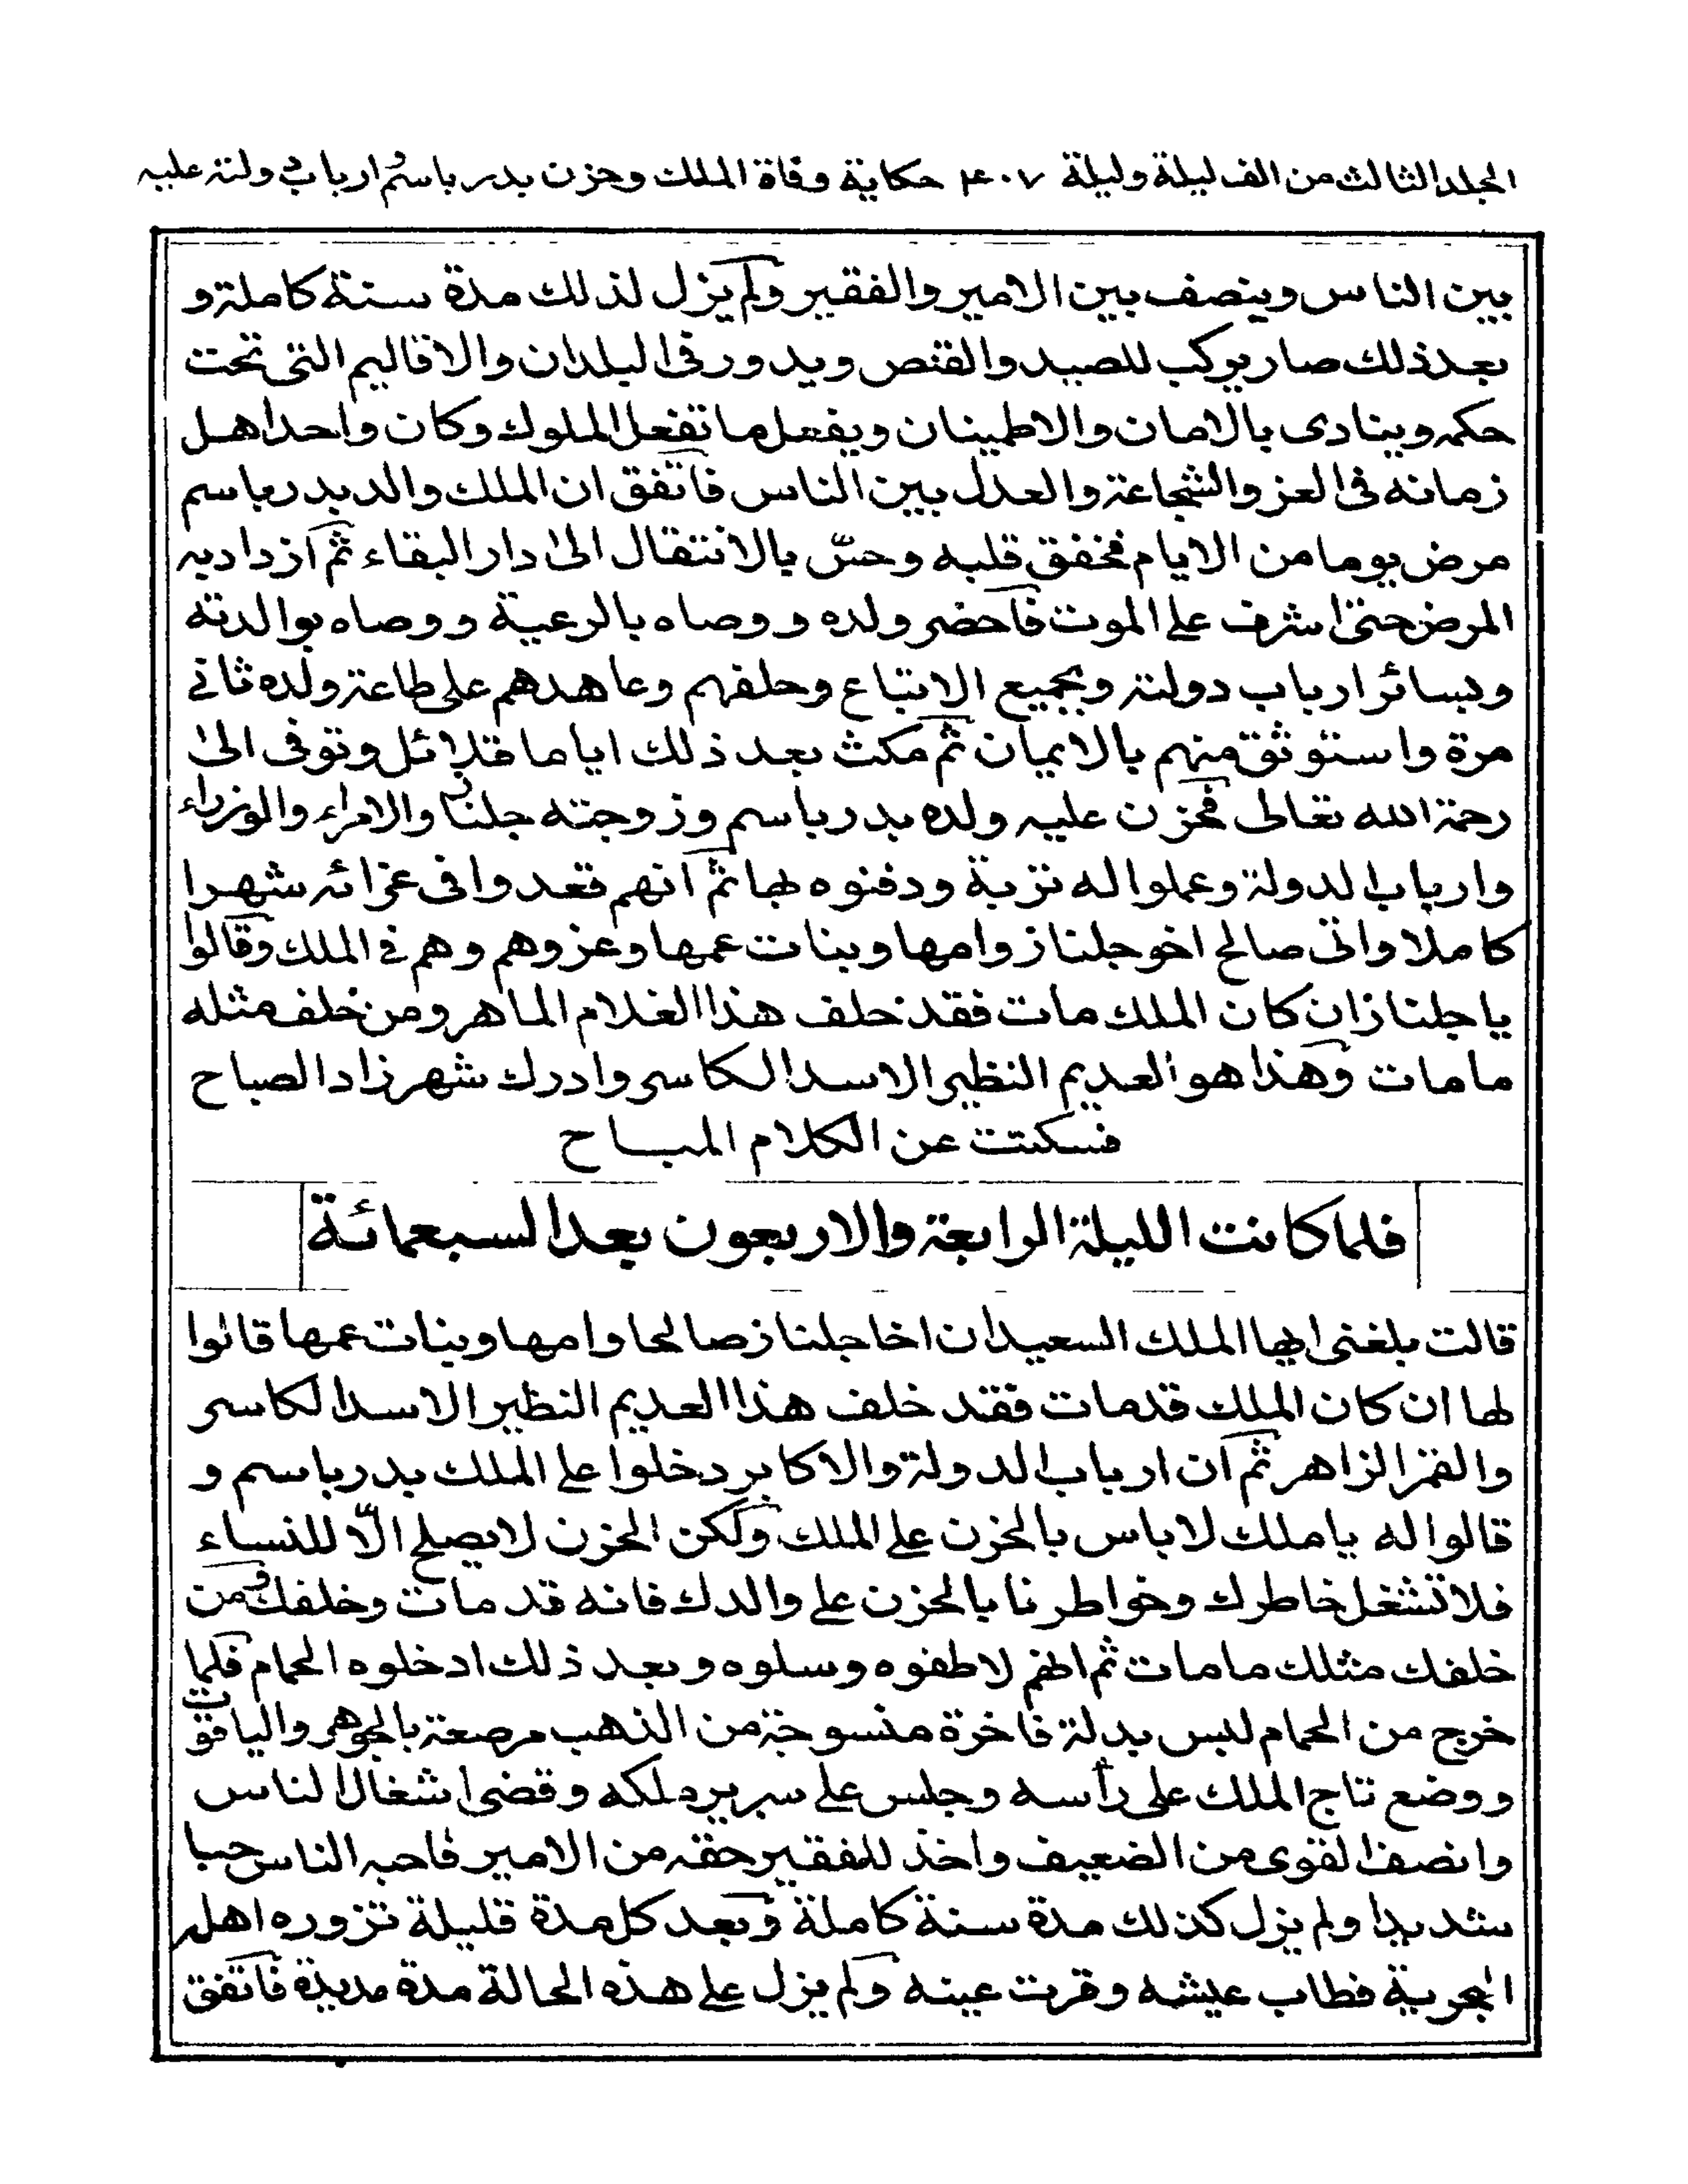 المجلد الثالث من الف ليلة وليلة ٤٠٧ حكاية وفاة الملك وحزن بدر باسم وارباب دولته عليه
بين الناس وينصف بين الامير والفقير ولم يزل لذلك مدة سنة كاملة و
بعد ذلك صار يركب للصيد والقنص ويدور فى البلدان والاقاليم التى تحت
حكمه وينادى بالامان والاطمينان ويفعل ما تفعل الملوك وكان واحد اهل
زمانه فى العز والشجاعة والعدل بين الناس فاتفق ان الملك والد بدر باسم
مرض يوما من الايام فخفق قلبه وحسّ بالانتقال الى دار البقاء ثم ازداد به
المرض حتى اشرف على الموت فاحضر ولده ووصاه بالرعية ووصاه بوالدته
وبسائر ارباب دولته وبجميع الاتباع وحلفهم وعاهدهم على طاعة ولده ثانى
مرة واستوثق منهم بالايمان ثم مكث بعد ذلك اياما قلائل وتوفى الى
رحمة الله تعالى فحزن عليه ولده بدر باسم وزوجته جلناز والامراء والوزراء
وارباب الدولة وعملوا له تربة ودفنوه بها ثم انهم قعدوا فى عزائه شهرا
كاملا واتى صالح اخو جلناز وامها وبنات عمها وعزوهم وهم فى الملك وقالوا
يا جلناز ان كان الملك مات فقد خلف هذا الغلام الماهر ومن خلف مثله
ما مات وهذا هو العديم النظير الاسد الكاسر وادرك شهرزاد الصباح
فسكتت عن الكلام المباح
فلما كانت الليلة الرابعة والاربعون بعد السبعمائة
قالت بلغنى ايها الملك السعيد ان اخا جلناز صالحا وامها وبنات عمها قالوا
لها ان كان الملك قد مات فقد خلف هذا العديم النظير الاسد الكاسر
والقمر الزاهر ثم ان ارباب الدولة والاكابر دخلوا على الملك بدر باسم و
قالوا له يا ملك لا باس بالحزن على الملك ولكن الحزن لا يصلح الّا للنساء
فلا تشغل خاطرك وخواطرنا بالحزن على والدك فانه قد مات وخلفك ومن
خلفك مثلك ما مات ثم انهم لاطفوه وسلوه وبعد ذلك ادخلوه الحمام فلما
خرج من الحمام لبس بدلة فاخرة منسوجة من الذهب مرصعة بالجوهر والياقوت
ووضع تاج الملك على رأسه وجلس على سرير ملكه وقضى اشغال الناس
وانصف القوى من الضعيف واخذ للفقير حقه من الامير فاحبه الناس حبا
شديدا ولم يزل كذلك مدة سنة كاملة وبعد كل مدة قليلة تزوره اهله
البحرية فطاب عيشه وقرت عينه ولم يزل على هذه الحالة مدة مديدة فاتفق